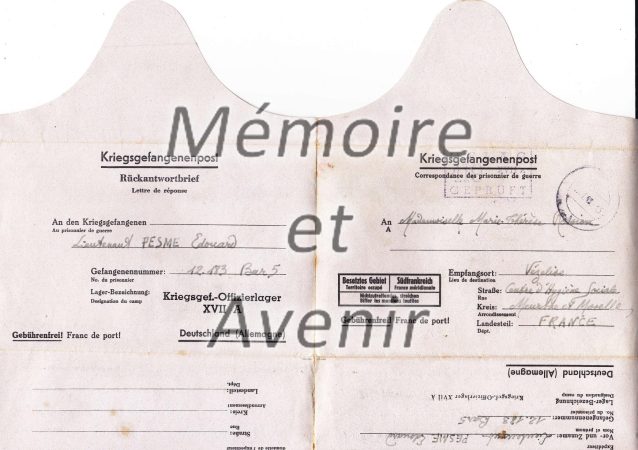 Mémoire
et
Avenir
Kriegsgefangenenpost
Rückantwortbrief
Lettre de réponse
An den Kriegsgefangenen
Au prisonnier de guerre
Lieutenant PESME Edouard
Gefangenennummer: 12.173 Bar. 5
No. du prisonnier
Lager-Bezeichnung:
Désignation du camp
Kriegsgef.-Offizierlager
XVII A
Gebührenfrei! Franc de port!
Deutschland (Allemagne)
Kriegsgefangenenpost
Correspondance des prisonnier de guerre
GEPRÜFT
An
A
Mademoiselle Marie-Thérèse
Besetztes Gebiet
Territoire occupé
Südfrankreich
France méridionale
Nichtzutreffendes streichen
Biffer la mention inutile
Empfangsort:
Lieu de destination
Straße: Centre d'Hygiène Sociale
Rue
Kreis: Meurthe et Moselle
Arrondissement
Landesteil: FRANCE
Dépt.
Gebührenfrei! Franc de port!
Dépt.
Landesteil:
Arrondissement
Kreis:
Rue
Straße:
Deutschland (Allemagne)
Kriegsgef.-Offizierlager XVII A
Désignation du camp
Lager-Bezeichnung:
No. du prisonnier
Gefangenennummer: Bar 5
Nom et prénom
Vor- und Zuname: Lieutenant PESME Edouard
Expéditeur